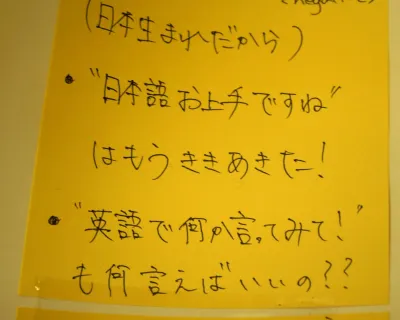 (日本生まれだから)
• "日本語お上手ですね"
はもうききあきた!
• "英語で何か言ってみて!"
も何言えばいいの??